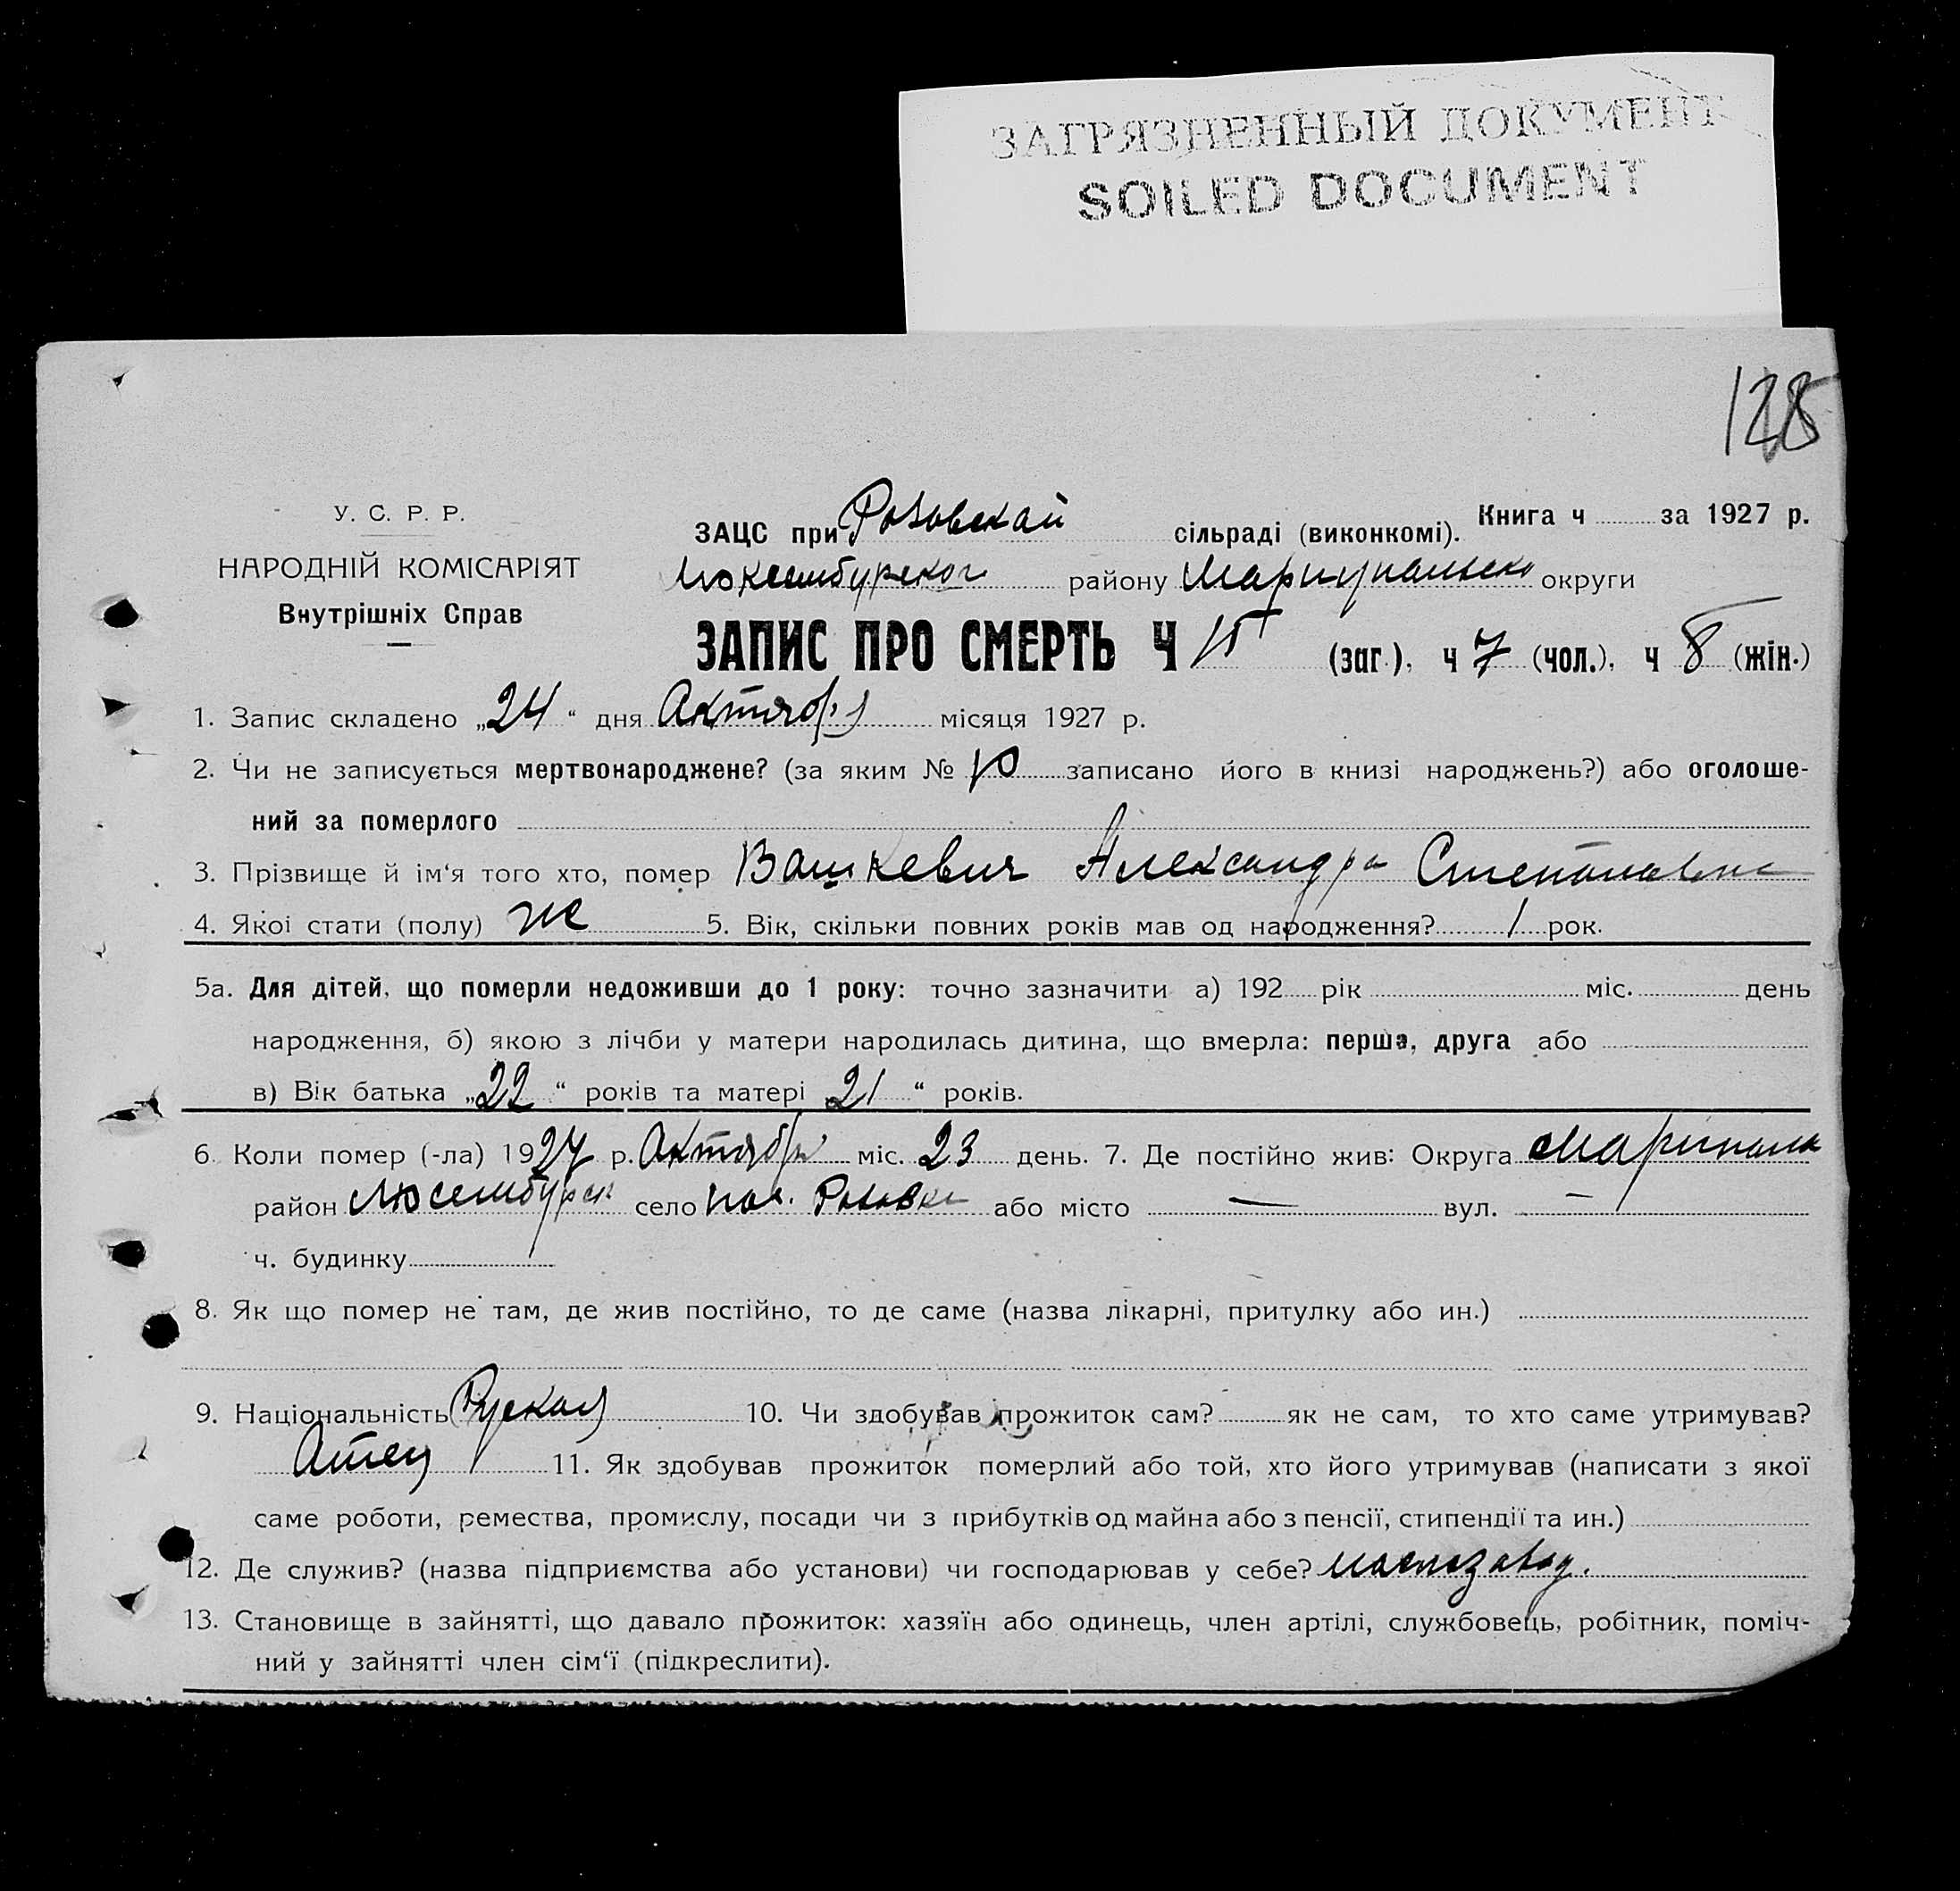 ЗАГРЯЗНЕННЫЙ ДОКУМЕНТ
SOILED DOCUMENT
У. С. Р. Р.
НАРОДНІЙ КОМІСАРІЯТ
Внутрішніх Справ
Книга ч за 1927 р.
ЗАЦС при Розовской сільраді (виконкомі).
району округи
ЗАПИС ПРО СМЕРТЬ Ч 15 (заг.), ч 7 (чол.), ч 8 (жін.)
1. Запис складено „24“ дня Актября місяця 1927 р.
2. Чи не записується мертвонароджене? (за яким № записано його в книзі народжень?) або оголоше-
ний за померлого
3. Прізвище й ім'я того хто, помер Вашкевич Александра Степановна
4. Якоі стати (полу) же 5. Вік, скільки повних років мав од народження? 1 рок.
5а. Для дітей, що померли недоживши до 1 року: точно зазначити а) 192 рік міс. день
народження, б) якою з лічби у матери народилась дитина, що вмерла: перша, друга або
в) Вік батька „22“ років та матері „21“ років.
6. Коли помер (-ла) 1927 р. Актября міс. 23 день. 7. Де постійно жив: Округа
район село або місто — вул. —
ч. будинку
8. Як що помер не там, де жив постійно, то де саме (назва лікарні, притулку або ин.)
9. Національність Руская 10. Чи здобував прожиток сам? як не сам, то хто саме утримував?
Атец 11. Як здобував прожиток померлий або той, хто його утримував (написати з якої
саме роботи, ремества, промислу, посади чи з прибутків од майна або з пенсії, стипендії та ин.)
12. Де служив? (назва підприємства або установи) чи господарював у себе?
13. Становище в зайнятті, що давало прожиток: хазяїн або одинець, член артілі, службовець, робітник, поміч-
ний у зайнятті член сім'ї (підкреслити).